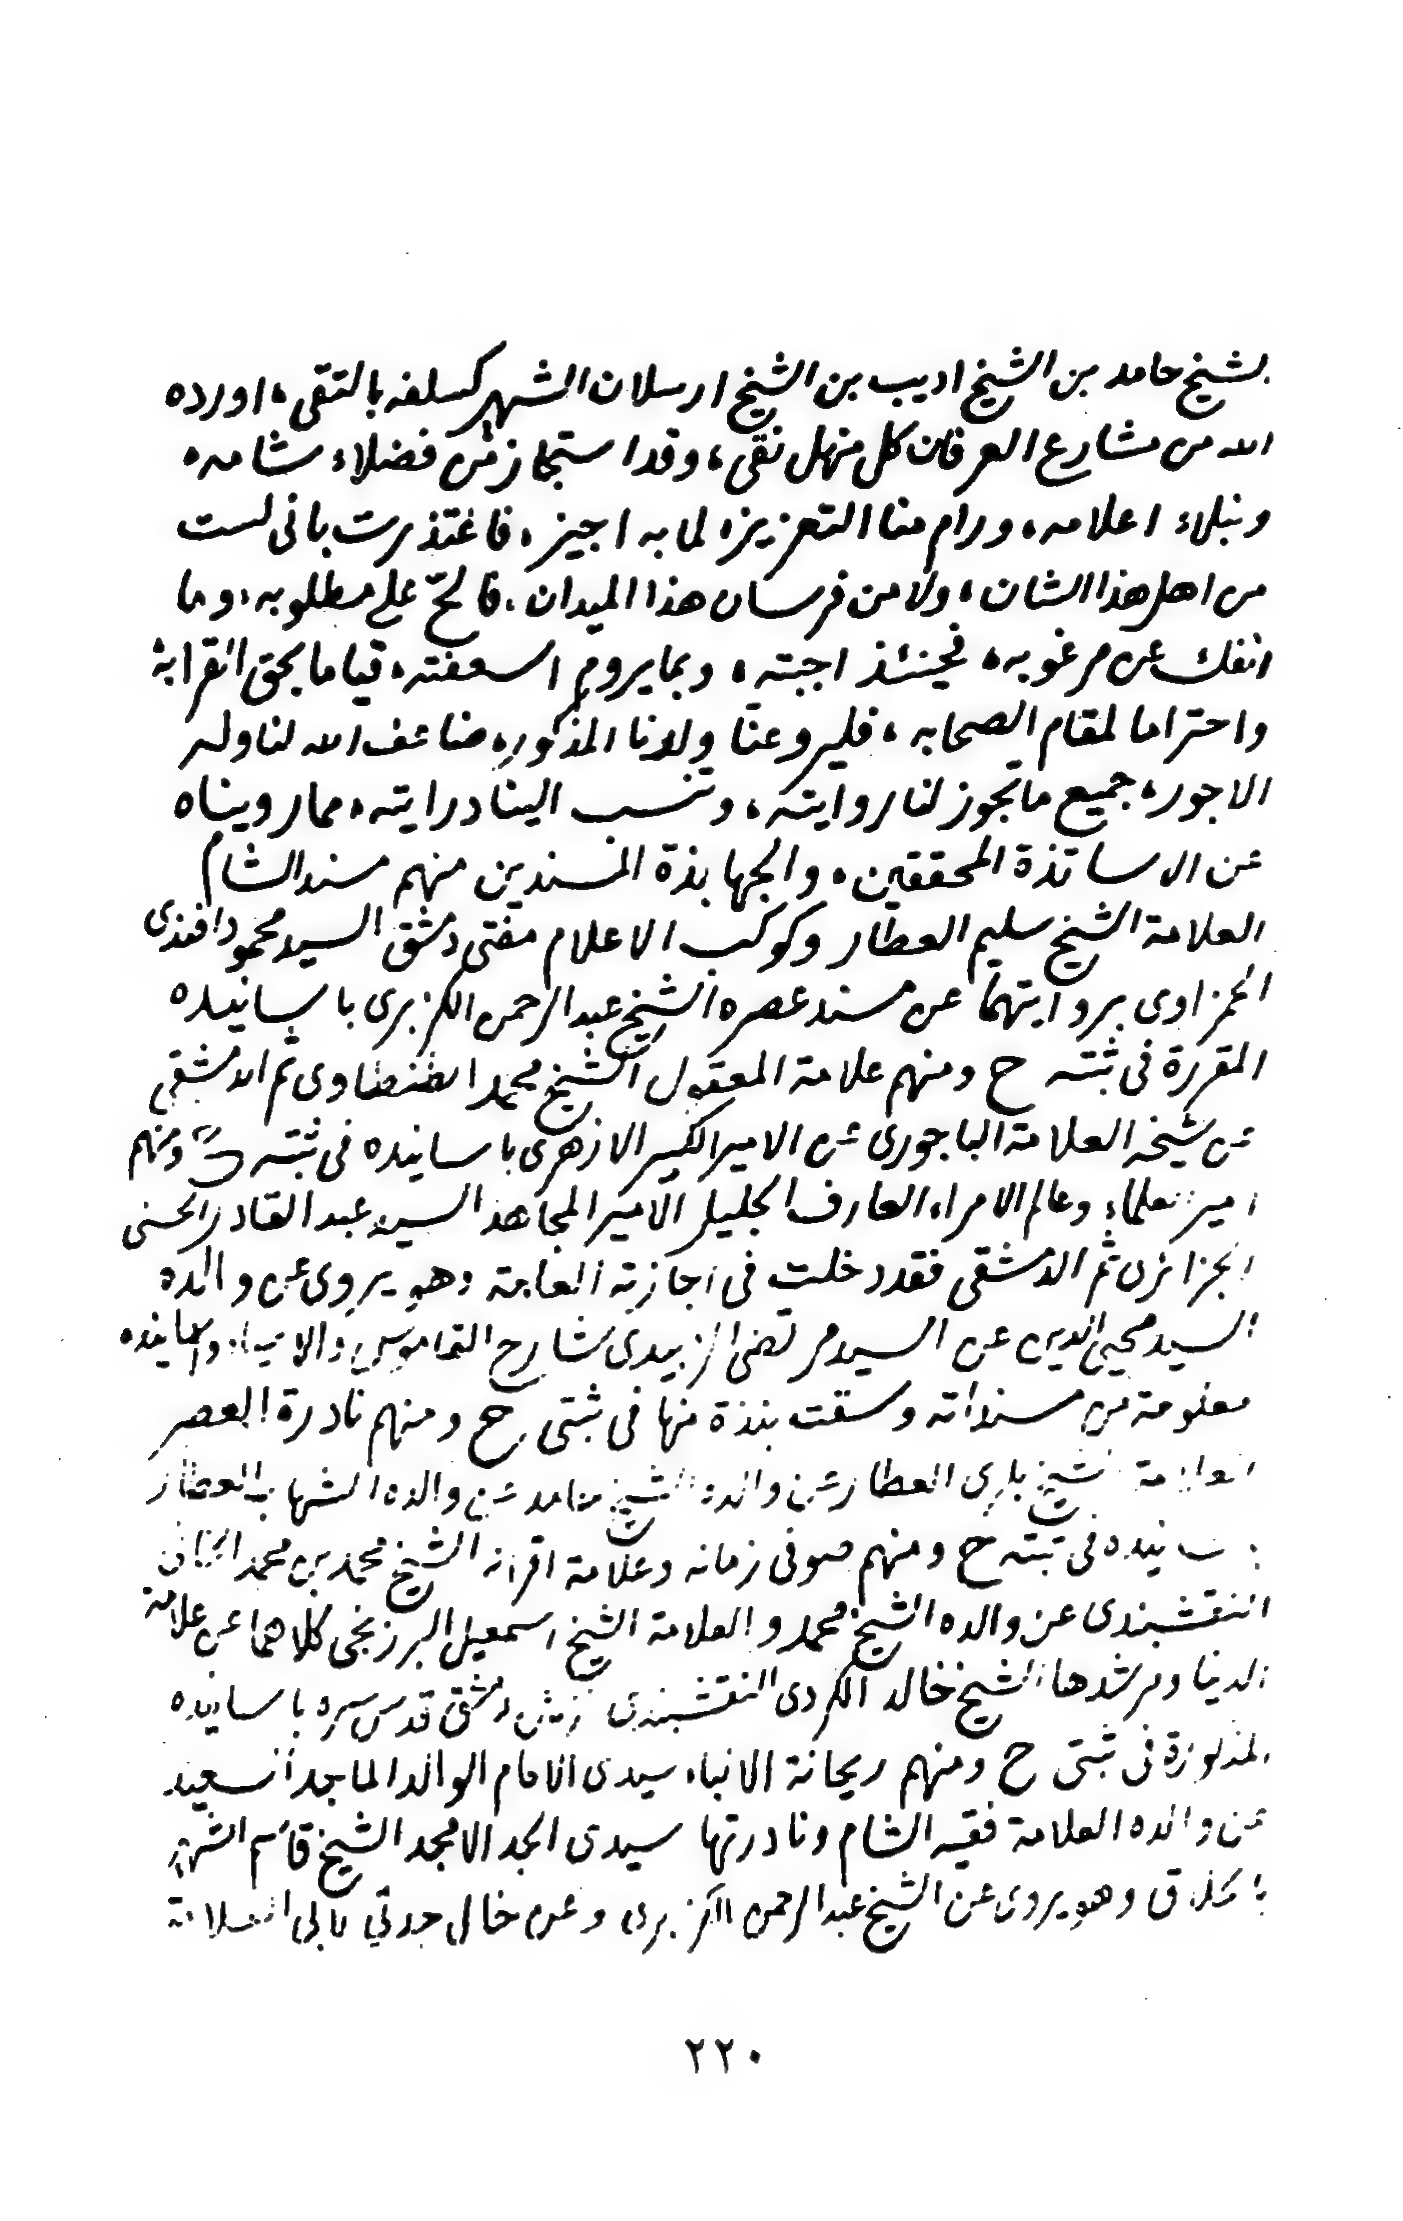 الشيخ حامد بن الشيخ اديب بن الشيخ ارسلان الشهير كسلفه بالتقى، اورده
الله من مشارع العرفان كل منهل نقى، وقد استجاز من فضلاء شامه
ونبلاء اعلامه، ورام منا التعزيز، لما به اجيز، فاعتذرت بانى لست
من اهل هذا الشان، ولا من فرسان هذا الميدان، فالحّ على مطلوبه، وما
انفك عن مرغوبه، فحينئذ اجبته، وبما يروم اسعفته، قياما بحق القرابة
واحتراما لمقام الصحابه، فليرو عنا ولانا المذكور، ضاعف الله لنا وله
الاجور، جميع ما تجوز لنا روايته، وتنسب الينا درايته، مما رويناه
عن الاساتذة المحققين، والجهابذة المسندين منهم مسند الشام
العلامة الشيخ سليم العطار وكوكب الاعلام مفتى دمشق السيد محمود افندى
الحمزاوى بروايتهما عن مسند عصره الشيخ عبد الرحمن الكزبرى باسانيده
المقررة فى ثبته ح ومنهم علامة المعقول الشيخ محمد الطنطاوى ثم الدمشقى
عن شيخه العلامة الباجورى عن الامير الكبير الازهرى باسانيده فى ثبته ح ومنهم
امير العلماء وعالم الامراء العارف الجليل الامير المجاهد السيد عبد القادر الحسنى
الجزائرى ثم الدمشقى فقد دخلت فى اجازته العامة وهو يروى عن والده
السيد محيى الدين عن السيد مرتضى الزبيدى شارح القاموس والاحياء واسانيده
معلومة من مسنداته وسقت نبذة منها فى ثبتى ح ومنهم نادرة العصر
العلامة الشيخ بكرى العطار عن والده الشيخ حامد عن والده الشهاب العطار
باسانيده فى ثبته ح ومنهم صوفى زمانه وعلامة اقرانه الشيخ محمد بن محمد الخانى
النقشبندى عن والده الشيخ محمد والعلامة الشيخ اسمعيل البرزنجى كلاهما عن علامة
الدنيا ومرشدها الشيخ خالد الكردى النقشبندى نزيل دمشق قدس سره باسانيده
المذكورة فى ثبتى ح ومنهم ريحانة الانباء سيدى الامام الوالد الماجد السعيد
عن والده العلامة فقيه الشام ونادرتها سيدى الجد الامجد الشيخ قاسم الشهير
بالحلاق وهو يروى عن الشيخ عبد الرحمن الكزبرى وعن خال جدتي لابى العلامة
٢٢٠